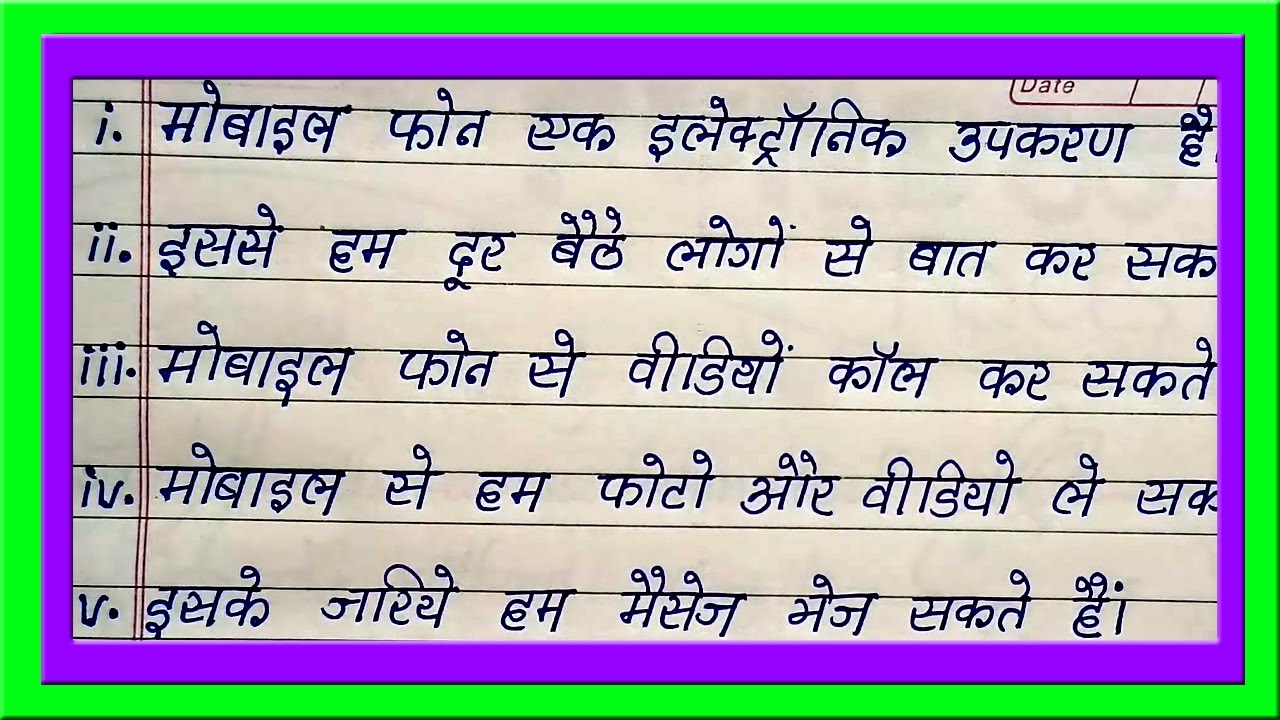 Date
i. मोबाइल फोन एक इलेक्ट्रॉनिक उपकरण है।
ii. इससे हम दूर बैठे लोगों से बात कर सक
iii. मोबाइल फोन से वीडियों कॉल कर सकते
iv. मोबाइल से हम फोटो और वीडियो ले सक
v. इसके जरिये हम मैसेज भेज सकते हैं।